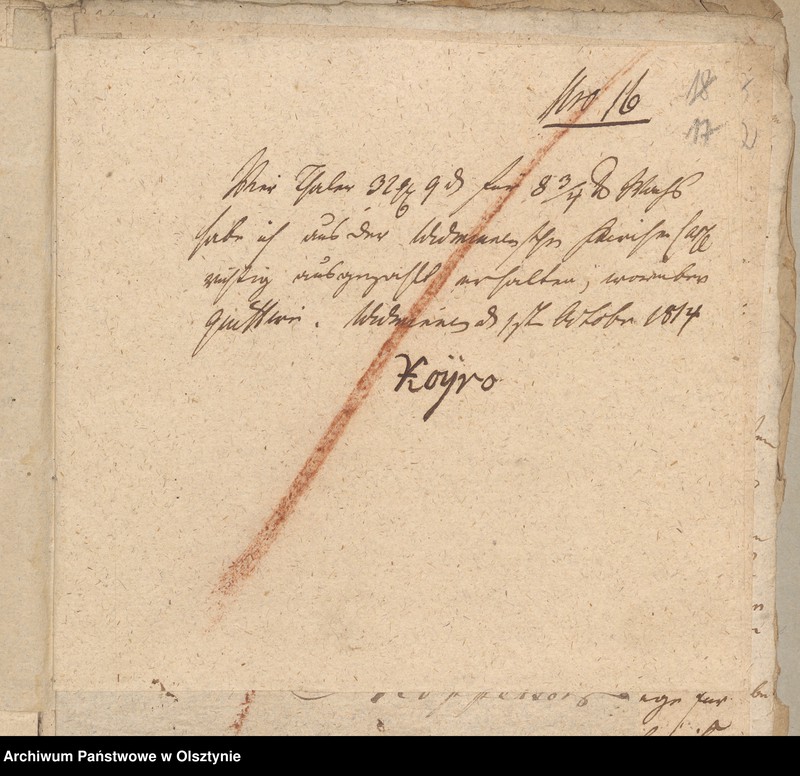 Nro 16
18
17
Vier Thaler 32 gr 9 d für 8 3/4 ℔ Wachs
habe ich aus der Widminnenschen Kirchen Casse
richtig ausgezahlt erhalten, worüber
quittire. Widminnen d 1st October 1814
Koÿro
Archiwum Państwowe w Olsztynie